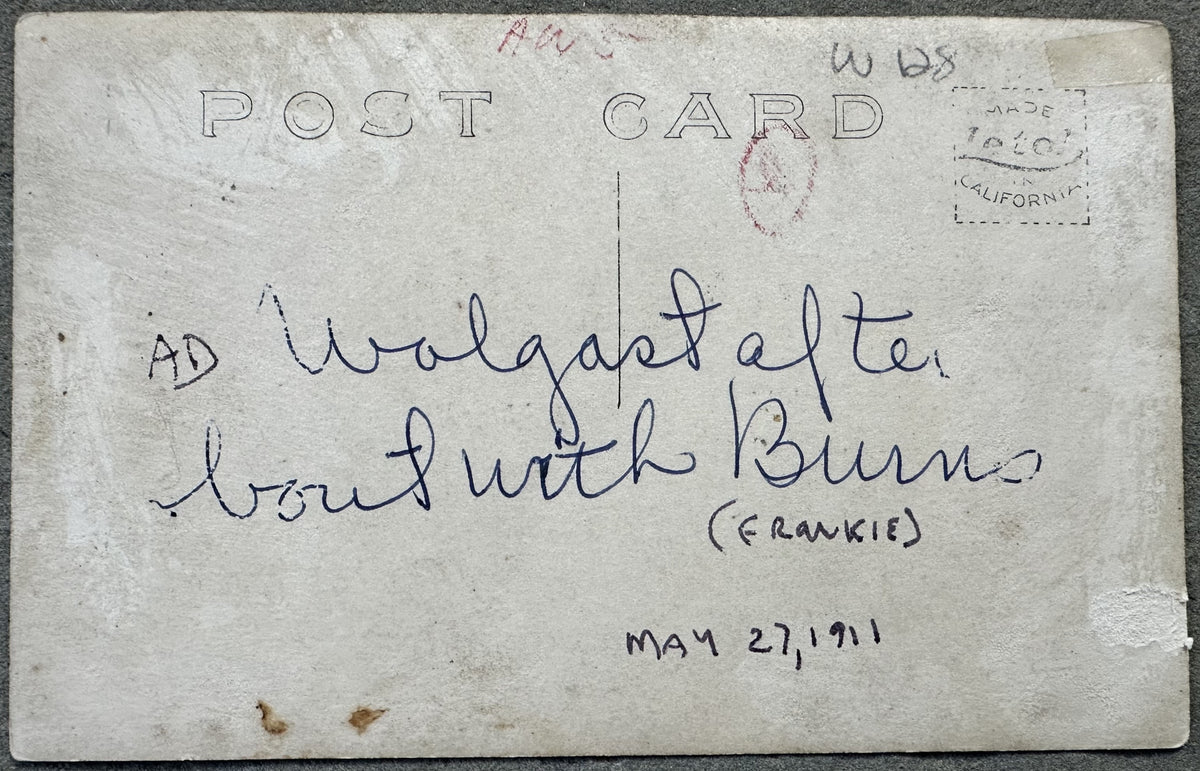 AW5
W 128
POST CARD
MADE
IN
CALIFORNIA
AD Wolgast after
bout with Burns
(FRANKIE)
MAY 27, 1911